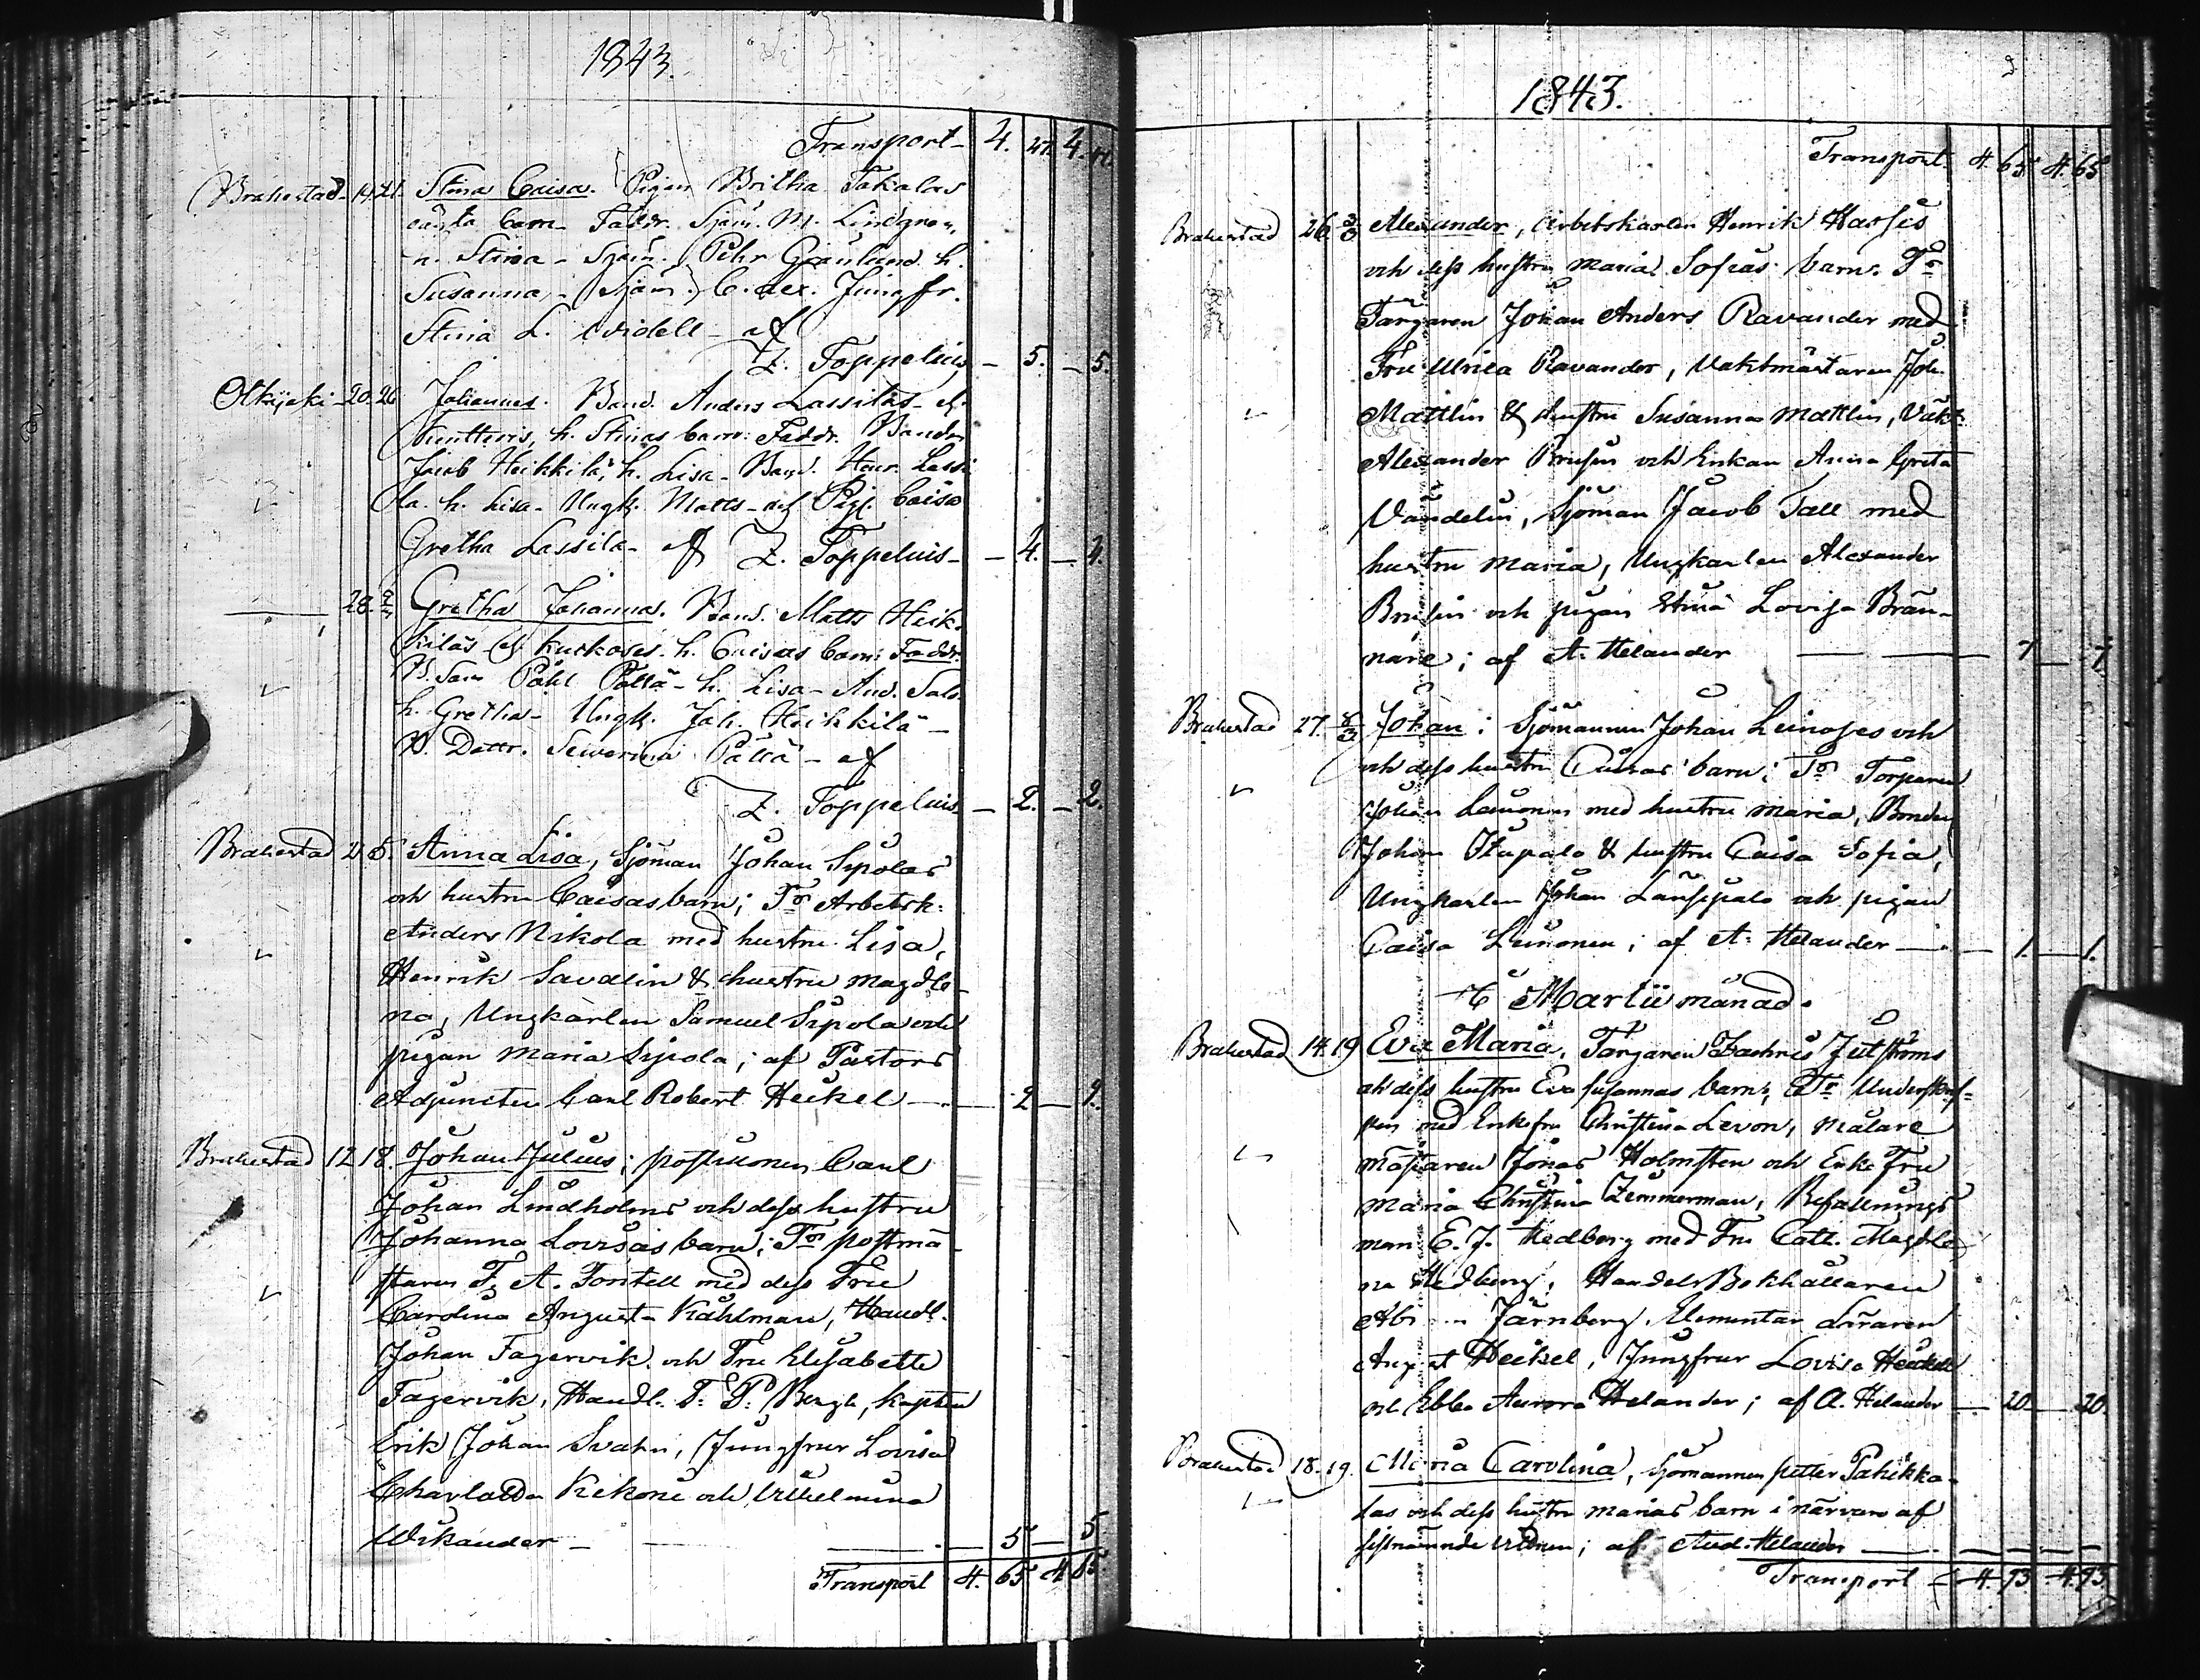 1843.
Transport - 4. 47. 4. 47.
Brahestad 19. 21. Stina Caisa. Pigan Britha Takalas
oägta barn. Faddr. Sjöm. M. Lindgren,
h. Stina - Sjöm. Pehr Grönlund h.
Susanna, - Sjöm. C. Jungfr.
Stina L. Widell - af
Z. Toppelius - 5. - 5.
Olkijoki - 20. 26 Johannes. Band. Anders Lassilas - 
h. Stinas barn: Faddr. Bander
Jacob Heikkilä, h. Lisa - Band. Henr. Lassi
la. h. Lisa - Ungk. Matts - och Pig. Caisa
Gretha Lassila - af Z. Toppelius - - 4. - 4.
28. 2/2 Gretha Johanna. Band. Matts Heik-
kilas h. Caisas barn: Faddr.
B. Son Påhl Pålla - h. Lisa - And. Salo
h. Gretha - Ungk. Joh. Heikkilä -
B. Dottr. Severina Pålla - af
Z. Toppelius - 2. - 2.
Brahestad 2. 5. Anna Lisa, Sjöman Johan Sipolas
och hustru Caisas barn; Fr Arbetsk:
Anders Nikola med hustru Lisa,
Henrik Savalin & hustru Magdle-
na, Ungkarlen Samuel Sipola och
pigan Maria Sipola; af Pastors
Adjuncten Carl Robert Heikel - 2 - 2.
Brahestad 12 18. Johan Julius; Carl
Johan Lindholms och dess hustru
Johanna Lovisas barn; Fr postmä-
staren F. A. Fontell med dess Fru
Carolina Augusta Kåhlman, Handl.
Johan Fagervik och Fru Elisabeth
Fagervik, Handl. F. P. Bergh, Kapten
Erik Johan Svahn, Jungfrur Lovisa
Charlotta Kekoni och Wilhelmina
Wikander - - 5 - 5
Transport 4. 65 4. 65.
1843.
Transport 4. 65. 4. 65
Brahestad 26. 3/3 Alexander, Arbetskarlen Henrik Hassis
och dess hustru Maria Sofias barn. Fr
Färgaren Johan Anders Ravander med
Fru Ulrica Ravander, Vaktmästaren Joh.
Mattlin & hustru Susanna Mattlin, Vakt:
Alexander Brusin och Enkan Anna Greta
Vändelin, Sjöman Jacob Tall med
hustru Maria, Ungkarlen Alexander
Brusin och pigan Stina Lovisa Brän-
nare; af A. Helander - 7 - 7
Brahestad 27. 5/3 Johan: Sjömannen Johan Leinoses och
och dess hustru Caisas barn; Fr Torparen
Johan Leinonen med hustru Maria, Bonden
Johan & hustru Caisa Sofia,
Ungkarlen Johan och pigan
Caisa Leinonen; af A. Helander - 1. - 1.
Martii månad.
Brahestad 14. 19 Eva Maria, Färgaren Zachris Jutströms
och dess hustru Eva Susannas barn; Fr
med Enkefru Christina Levon, Målare
mästaren Jonas Holmsten och Enke Fru
Maria Christina Zimmerman, Befallnings
man E. J. Hedberg med Fru Cath. Magdle
na Hedberg, Handels Bokhållaren
Järnberg, Elementar Läraren
August Heikel, Jungfrur Lovisa Heikel
och Ebba Aurora Helander; af A. Helander - 20. - 20.
Brahestad 18. 19. Maria Carolina, Sjömannen Petter Pahikka-
las och dess hustru Marias barn i närvaro af
sistnämnde vittnen; af And. Helander
Transport - 4. 93 - 4. 93